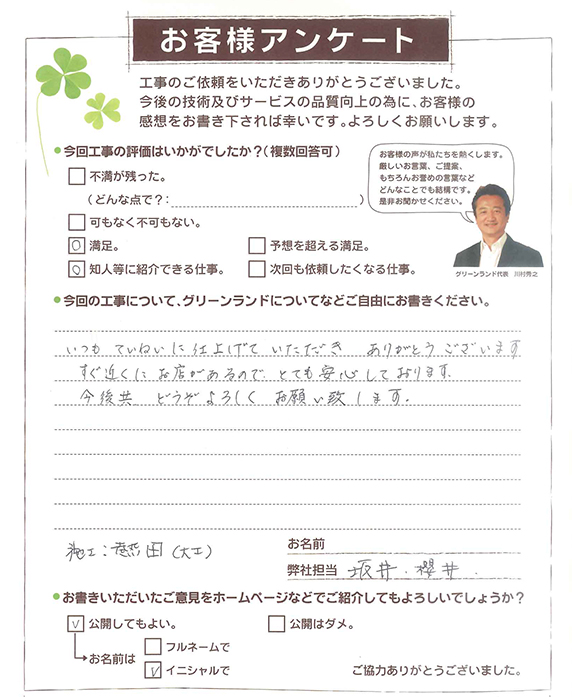 お客様アンケート
工事のご依頼をいただきありがとうございました。
今後の技術及びサービスの品質向上の為に、お客様の
感想をお書き下されば幸いです。よろしくお願いします。
今回工事の評価はいかがでしたか?(複数回答可)
不満が残った。
(どんな点で?: )
可もなく不可もない。
満足。
予想を超える満足。
知人等に紹介できる仕事。
次回も依頼したくなる仕事。
お客様の声が私たちを熱くします。
厳しいお言葉、ご提案、
もちろんお誉めの言葉など
どんなことでも結構です。
是非お聞かせください。
グリーンランド代表 川村秀之
今回の工事について、グリーンランドについてなどご自由にお書きください。
いつも ていねいに仕上げて いただき ありがとうございます
すぐ近くにお店があるので、とても安心しております。
今後共 どうぞよろしく お願い致します。
施工: 田(大工)
お名前
弊社担当 坂井・櫻井
お書きいただいたご意見をホームページなどでご紹介してもよろしいでしょうか?
公開してもよい。
公開はダメ。
お名前は
フルネームで
イニシャルで
ご協力ありがとうございました。